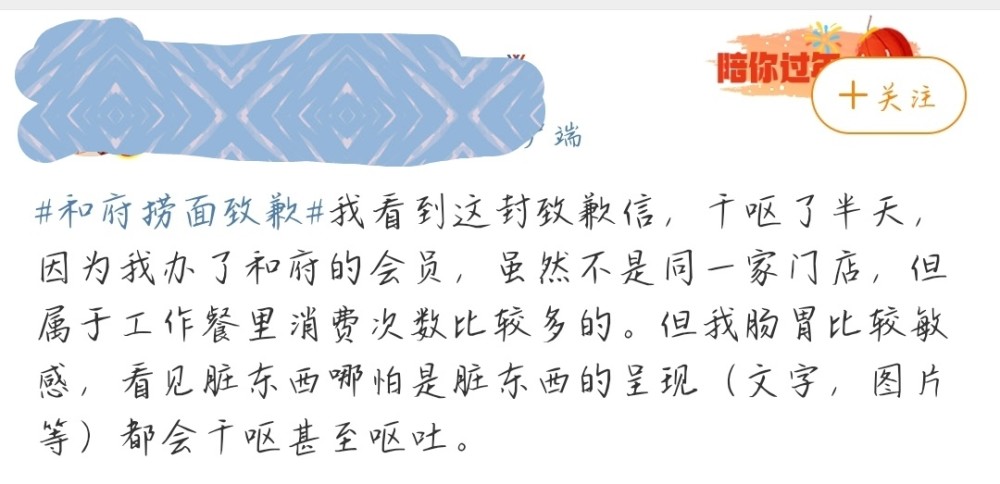 陪你过年
+关注
端
#和府捞面致歉#我看到这封致歉信，干呕了半天，
因为我办了和府的会员，虽然不是同一家门店，但
属于工作餐里消费次数比较多的。但我肠胃比较敏
感，看见脏东西哪怕是脏东西的呈现（文字，图片
等）都会干呕甚至呕吐。